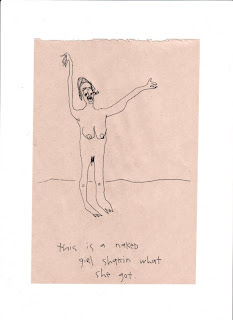 this is a naked
girl shakin what
she got.